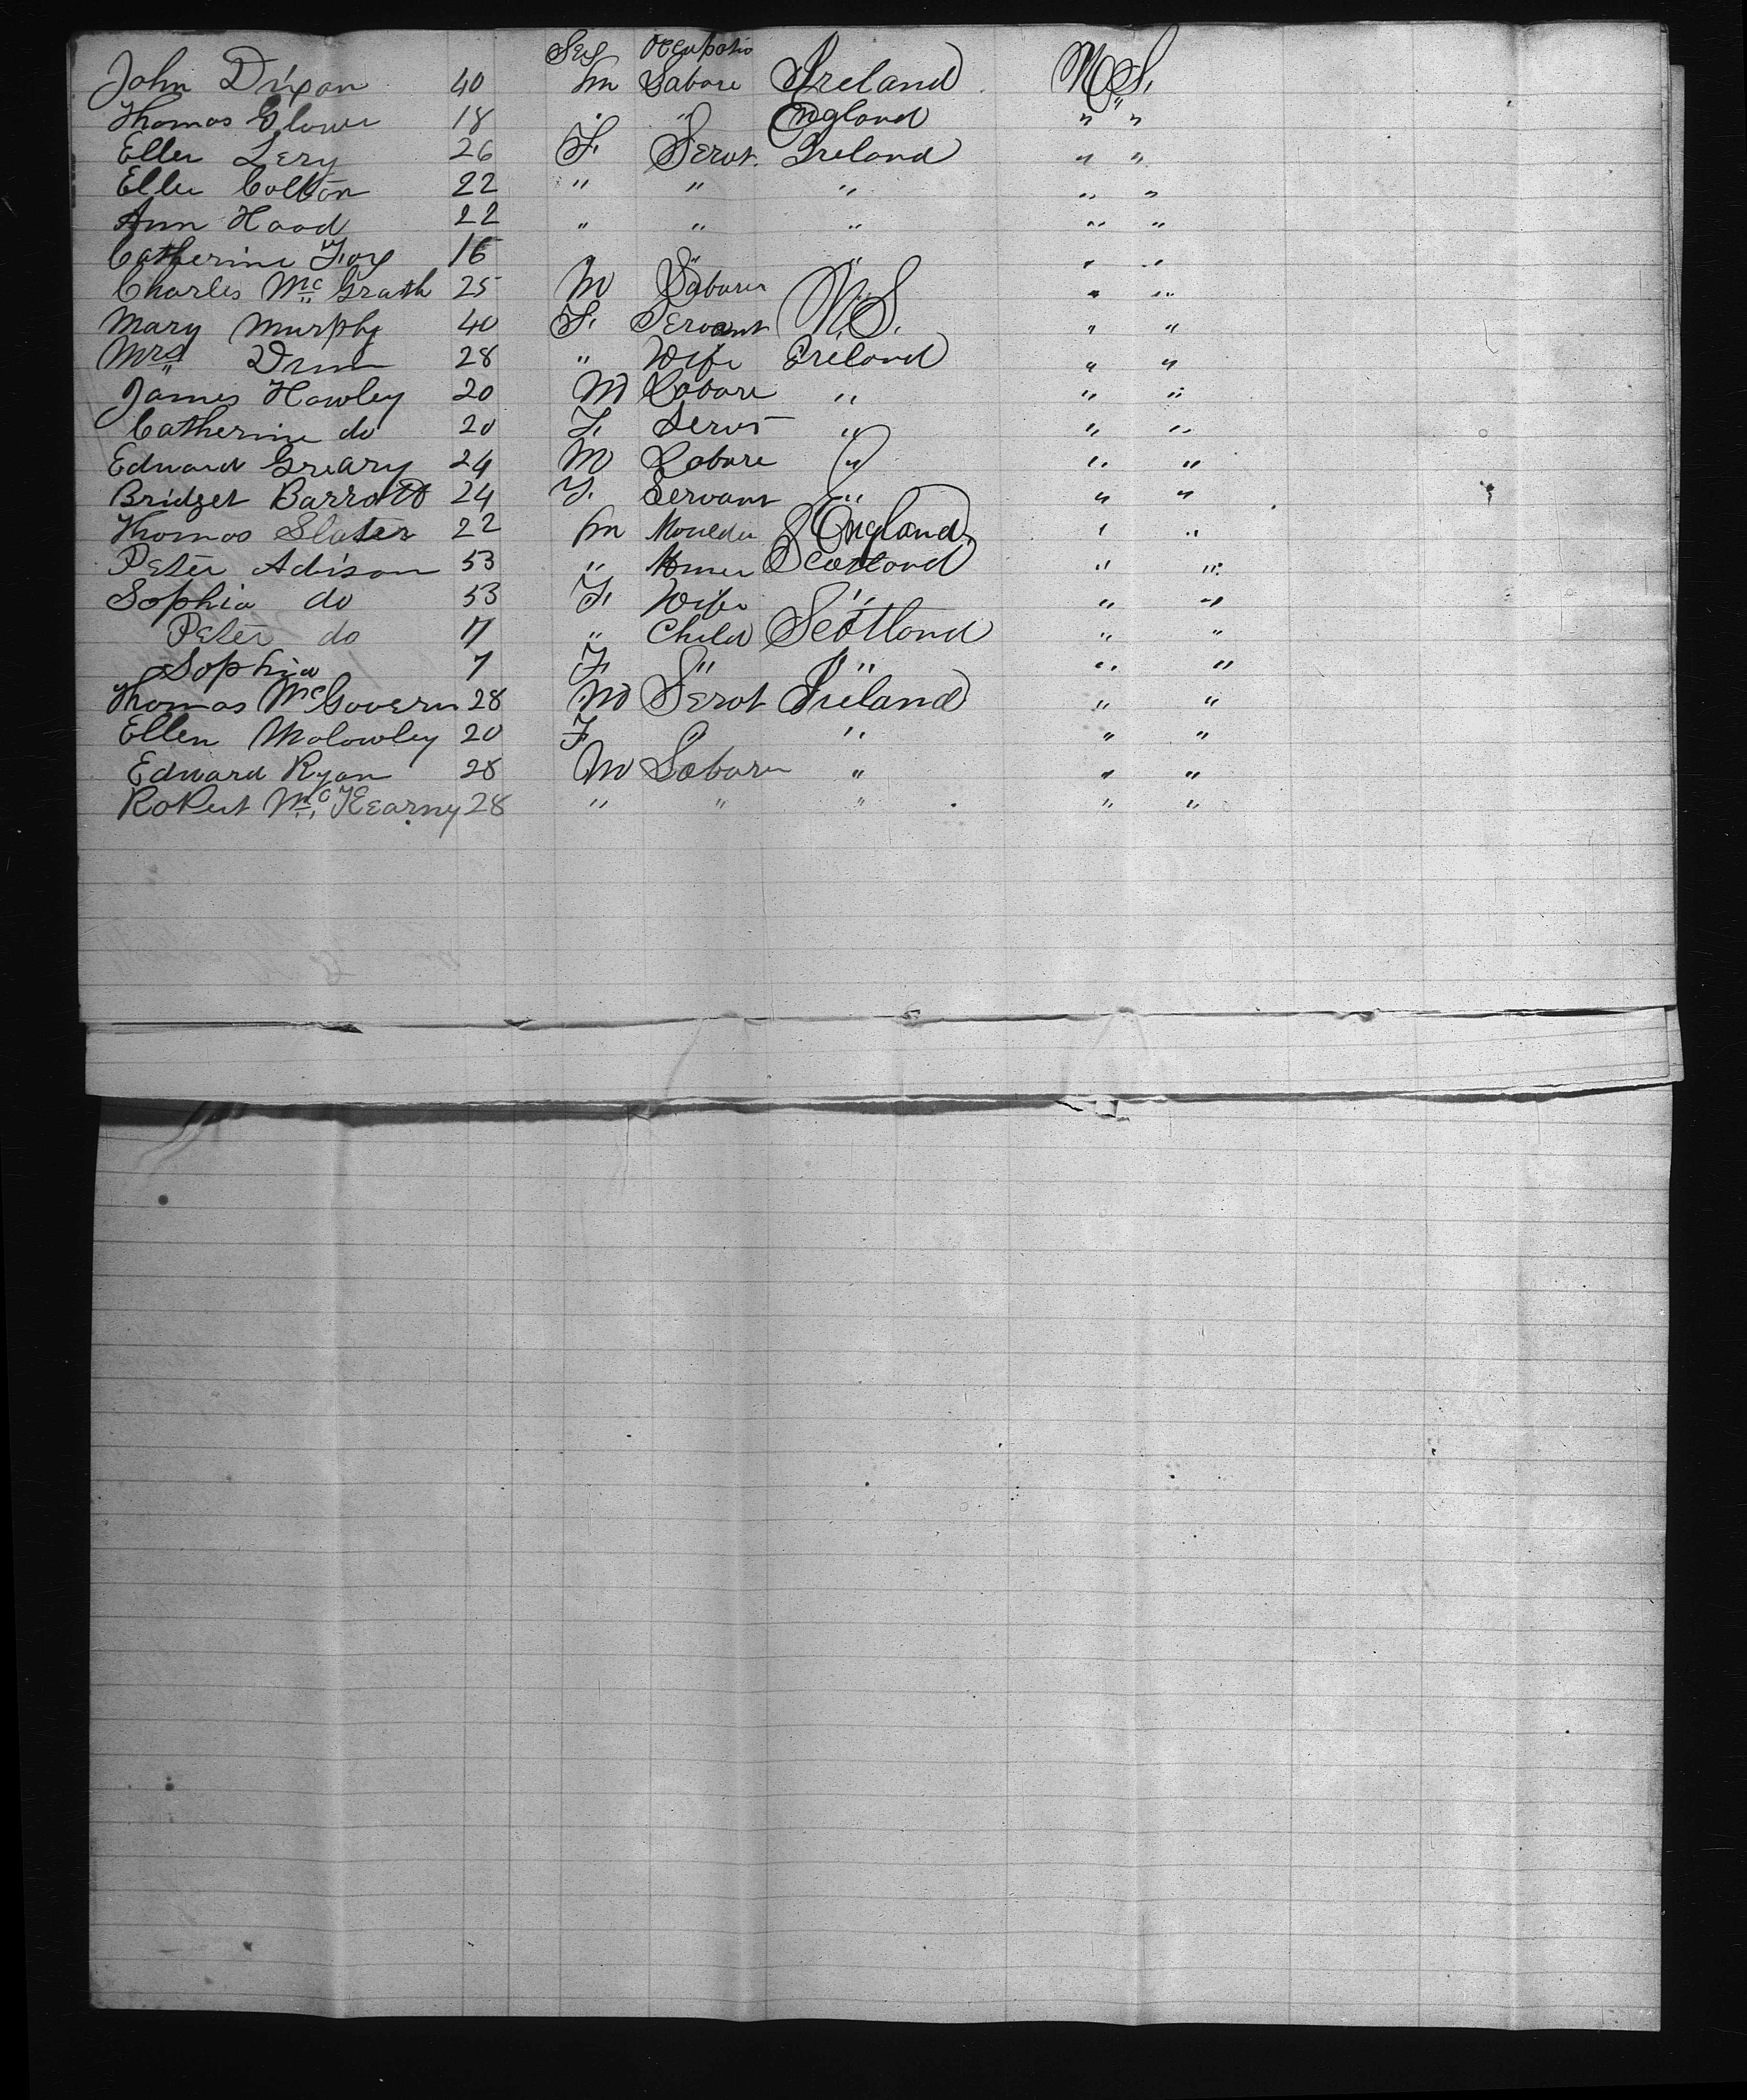 Sex Occupatio
John Dixon 40 m Labore Ireland U.S.
Thomas Glower 18 " " England " "
Ellen Lery 26 F. Servt. Ireland " "
Ellen Colton 22 " " " " "
Ann Hood 22 " " " " "
Catherine Foy 16 " " " " "
Charles McGrath 25 M Laborer " "
Mary Murphy 40 F. Servant U.S. " "
Mrs 28 " Wife Ireland " "
James Hawley 20 M Labore " " "
Catherine do 20 F. Servt " " "
Edward Greary 24 M Labore " " "
Bridget Barratt 24 F. Servant " " "
Thomas Slater 22 m Moulder England " "
Peter Adison 53 " Scotland " "
Sophia do 53 F. Wife " " "
Peter do 11 " Child Scotland " "
Sophia 7 F " " " "
Thomas McGovern 28 M Servt Ireland " "
Ellen Molowley 20 F " " " "
Edward Ryan 28 M Laborer " " "
Robert McKearny 28 " " " " "